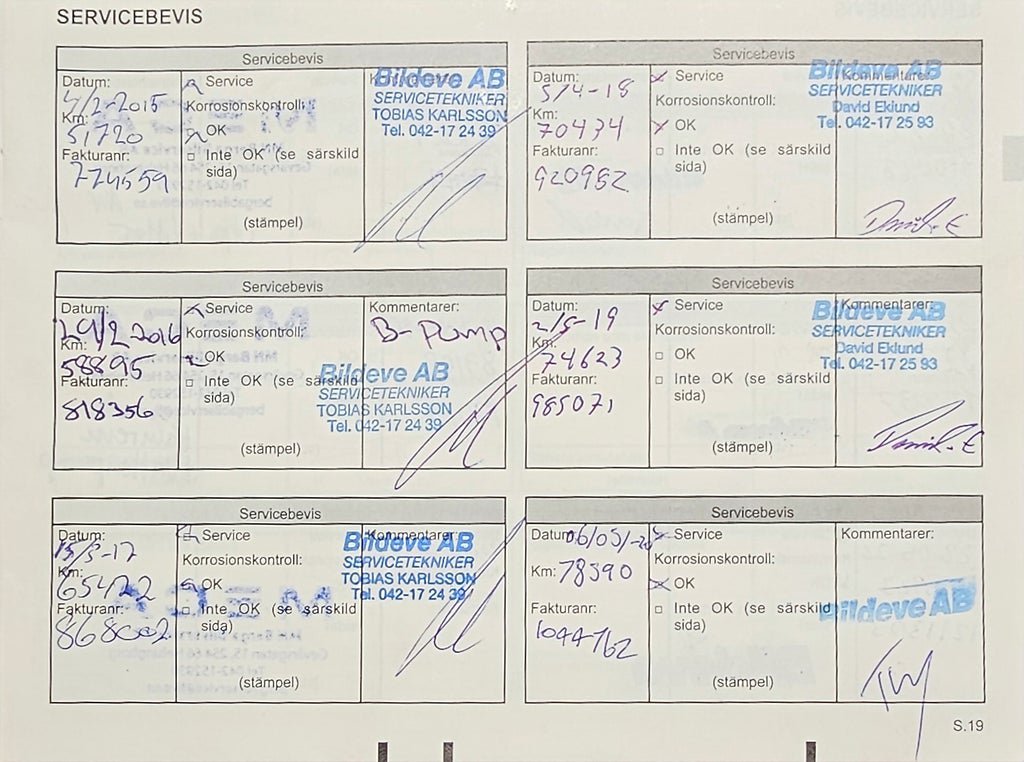 SERVICEBEVIS
Servicebevis
Datum:
4/2-2015
Km:
51720
Fakturanr:
774559
Service
Korrosionskontroll:
OK
Inte OK (se särskild
sida)
(stämpel)
Bildeve AB
SERVICETEKNIKER
TOBIAS KARLSSON
Tel. 042-17 24 39
Servicebevis
Datum:
5/4-18
Km:
70434
Fakturanr:
920952
Service
Korrosionskontroll:
OK
Inte OK (se särskild
sida)
(stämpel)
Kommentarer:
Bildeve AB
SERVICETEKNIKER
David Eklund
Tel. 042-17 25 93
David.E
Servicebevis
Datum:
29/2-2016
Km:
58895
Fakturanr:
818356
Service
Korrosionskontroll:
OK
Inte OK (se särskild
sida)
(stämpel)
Kommentarer:
B-Pump
Bildeve AB
SERVICETEKNIKER
TOBIAS KARLSSON
Tel. 042-17 24 39
Servicebevis
Datum:
2/5-19
Km:
74623
Fakturanr:
985071
Service
Korrosionskontroll:
OK
Inte OK (se särskild
sida)
(stämpel)
Kommentarer:
Bildeve AB
SERVICETEKNIKER
David Eklund
Tel. 042-17 25 93
David.E
Servicebevis
Datum:
13/3-17
Km:
65422
Fakturanr:
868002
Service
Korrosionskontroll:
OK
Inte OK (se särskild
sida)
(stämpel)
Kommentarer:
Bildeve AB
SERVICETEKNIKER
TOBIAS KARLSSON
Tel. 042-17 24 39
Servicebevis
Datum:
06/05/-20
Km:
78390
Fakturanr:
1044762
Service
Korrosionskontroll:
OK
Inte OK (se särskild
sida)
(stämpel)
Kommentarer:
Bildeve AB
S.19